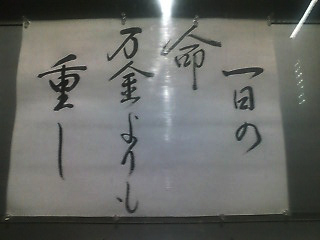 一日の
命
万金よりも
重し